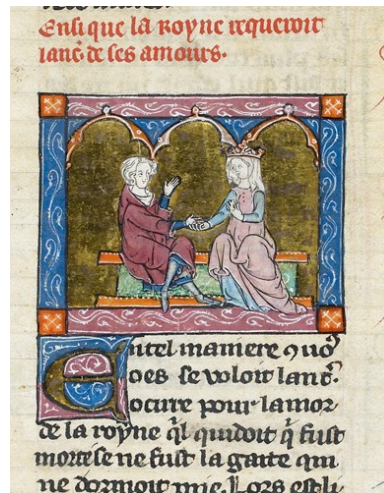 Ensi que la Royne requeroit
lanc̄. de ses amours.
Entel maniere ꝯ uoꝯ
oes se voloit lanc̄.
ocirre pour lamor
de la royne q̄l quidoit q̄ fust
morte se ne fust la garte qui
ne dormoit mie. Lors esta li